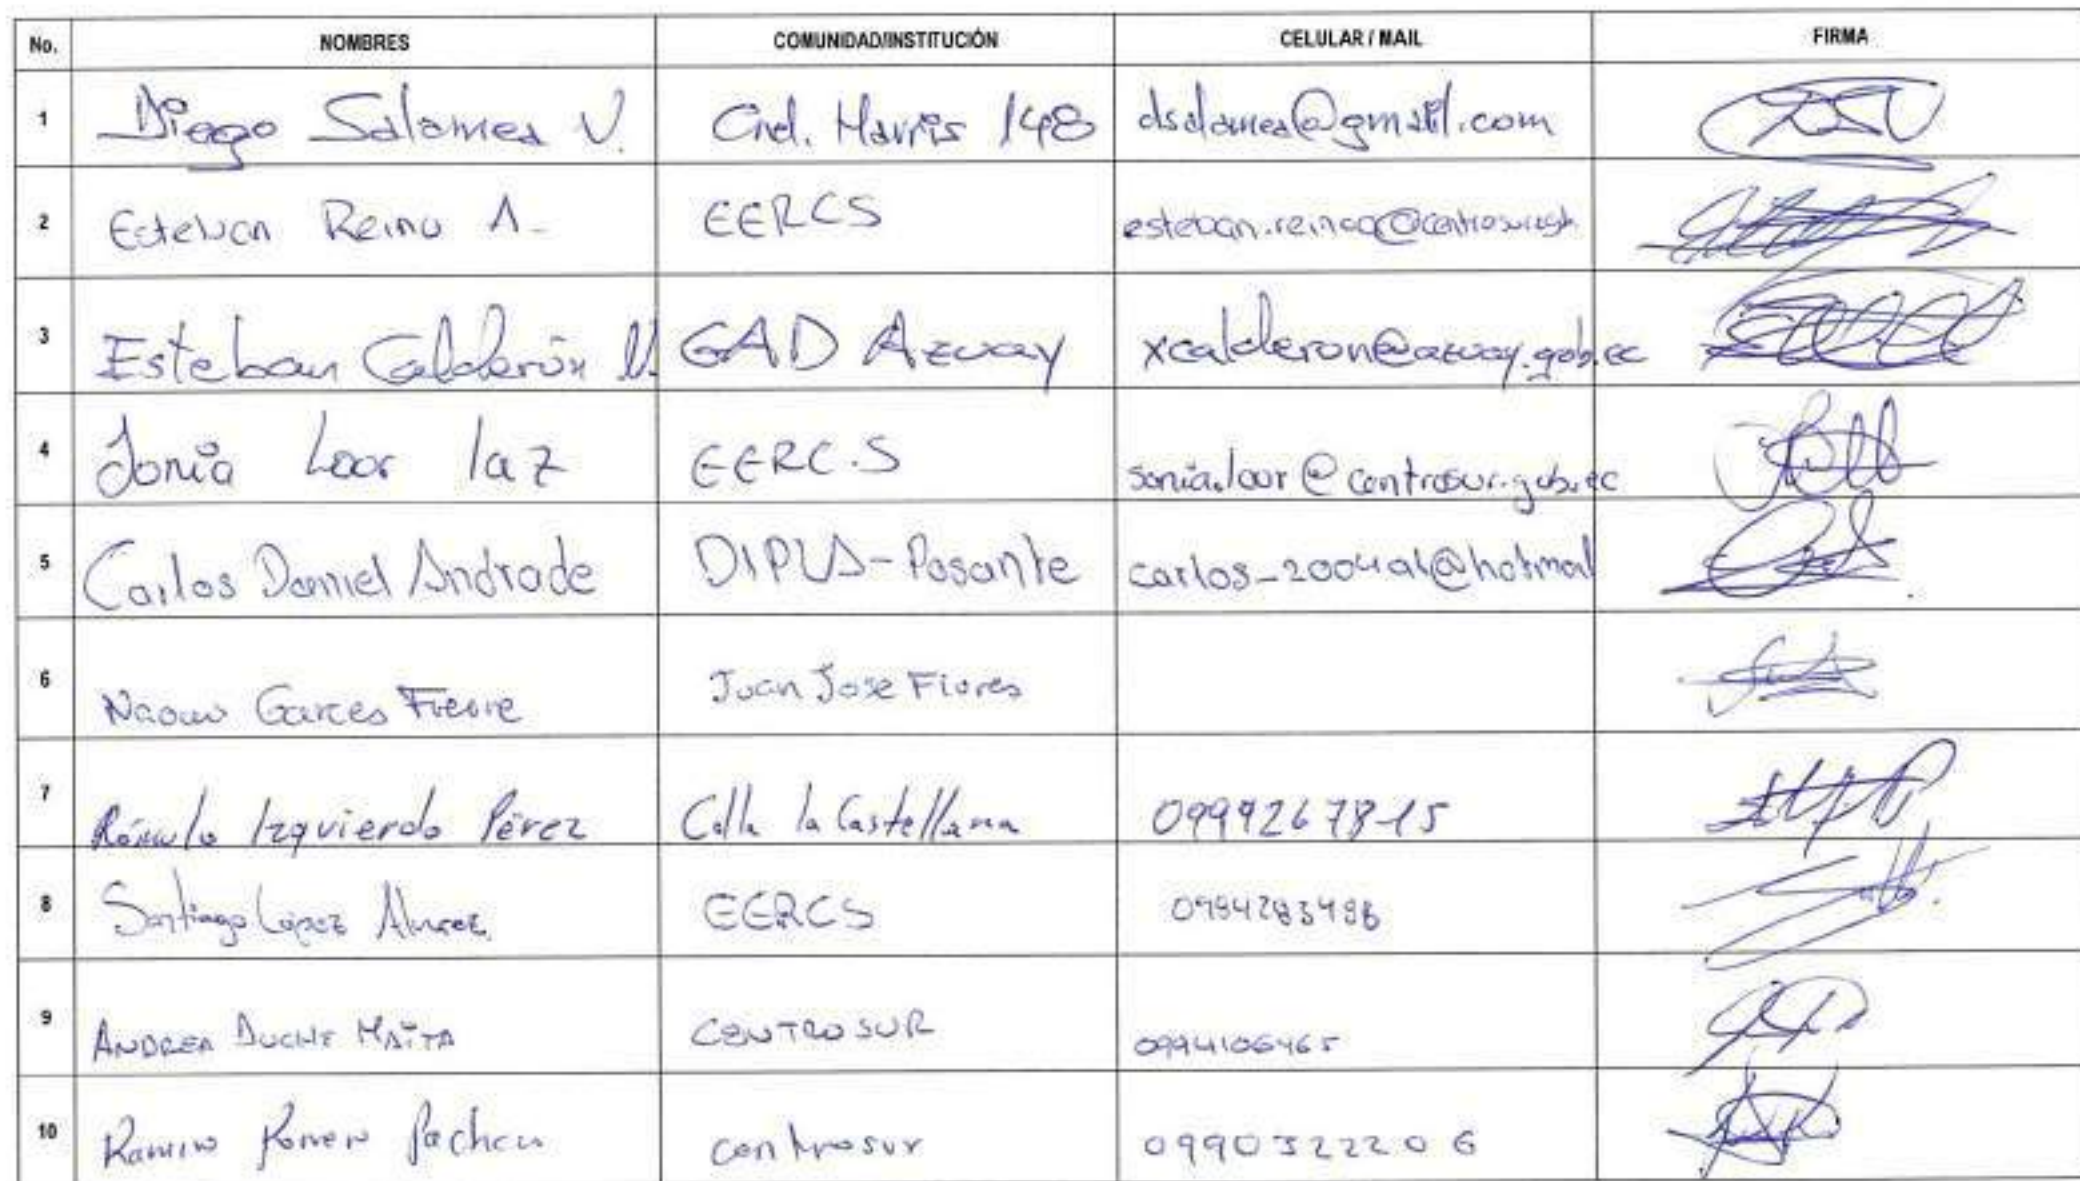 No. NOMBRES COMUNIDAD/INSTITUCIÓN CELULAR / MAIL FIRMA
1 Diego Salamea V. Cnel. Harris 148 dsalamea@gmail.com
2 Esteban Reino A. EERCS
3 Esteban Calderón GAD Azuay xcalderon@azuay.gob.ec
4 Sonia Loor laz EERC.S sonia.loor@centrosur.gob.ec
5 Carlos Daniel Andrade Pasante
6 Garces Freire Juan Jose Flores
7 Rómulo Izquierdo Pérez Calle la Castellana 0999267815
8 Santiago López Alvarez EERCS
9 ANDREA DUCHE MAITA CENTROSUR 0994106465
10 Ramiro Romero Pacheco centrosur 0990322206